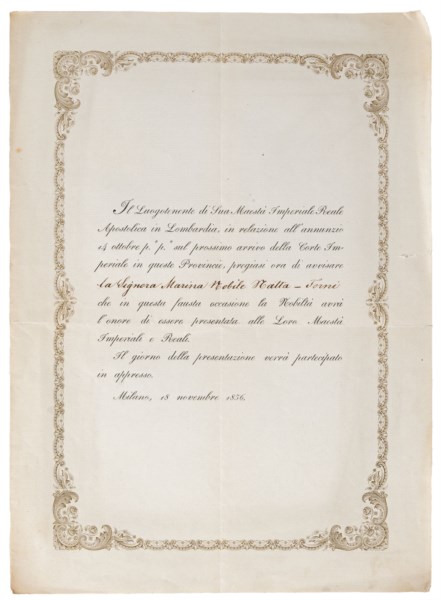 Il Luogotenente di Sua Maestà Imperiale Reale
Apostolica in Lombardia, in relazione all'annunzio
14 ottobre p.° p.° sul prossimo arrivo della Corte Im-
periale in queste Provincie, pregiasi ora di avvisare
la Signora Marina Nobile Natta –
che in questa fausta occasione la Nobiltà avrà
l'onore di essere presentata alle Loro Maestà
Imperiali e Reali.
Il giorno della presentazione verrà partecipato
in appresso.
Milano, 18 novembre 1856.